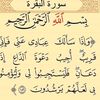 سورة البقرة
بِسْمِ اللَّهِ الرَّحْمَٰنِ الرَّحِيمِ
وَإِذَا سَأَلَكَ عِبَادِي عَنِّي فَإِنِّي
قَرِيبٌ أُجِيبُ دَعْوَةَ الدَّاعِ إِذَا
دَعَانِ فَلْيَسْتَجِيبُوا لِي وَلْيُؤْمِنُوا بِي
لَعَلَّهُمْ يَرْشُدُونَ